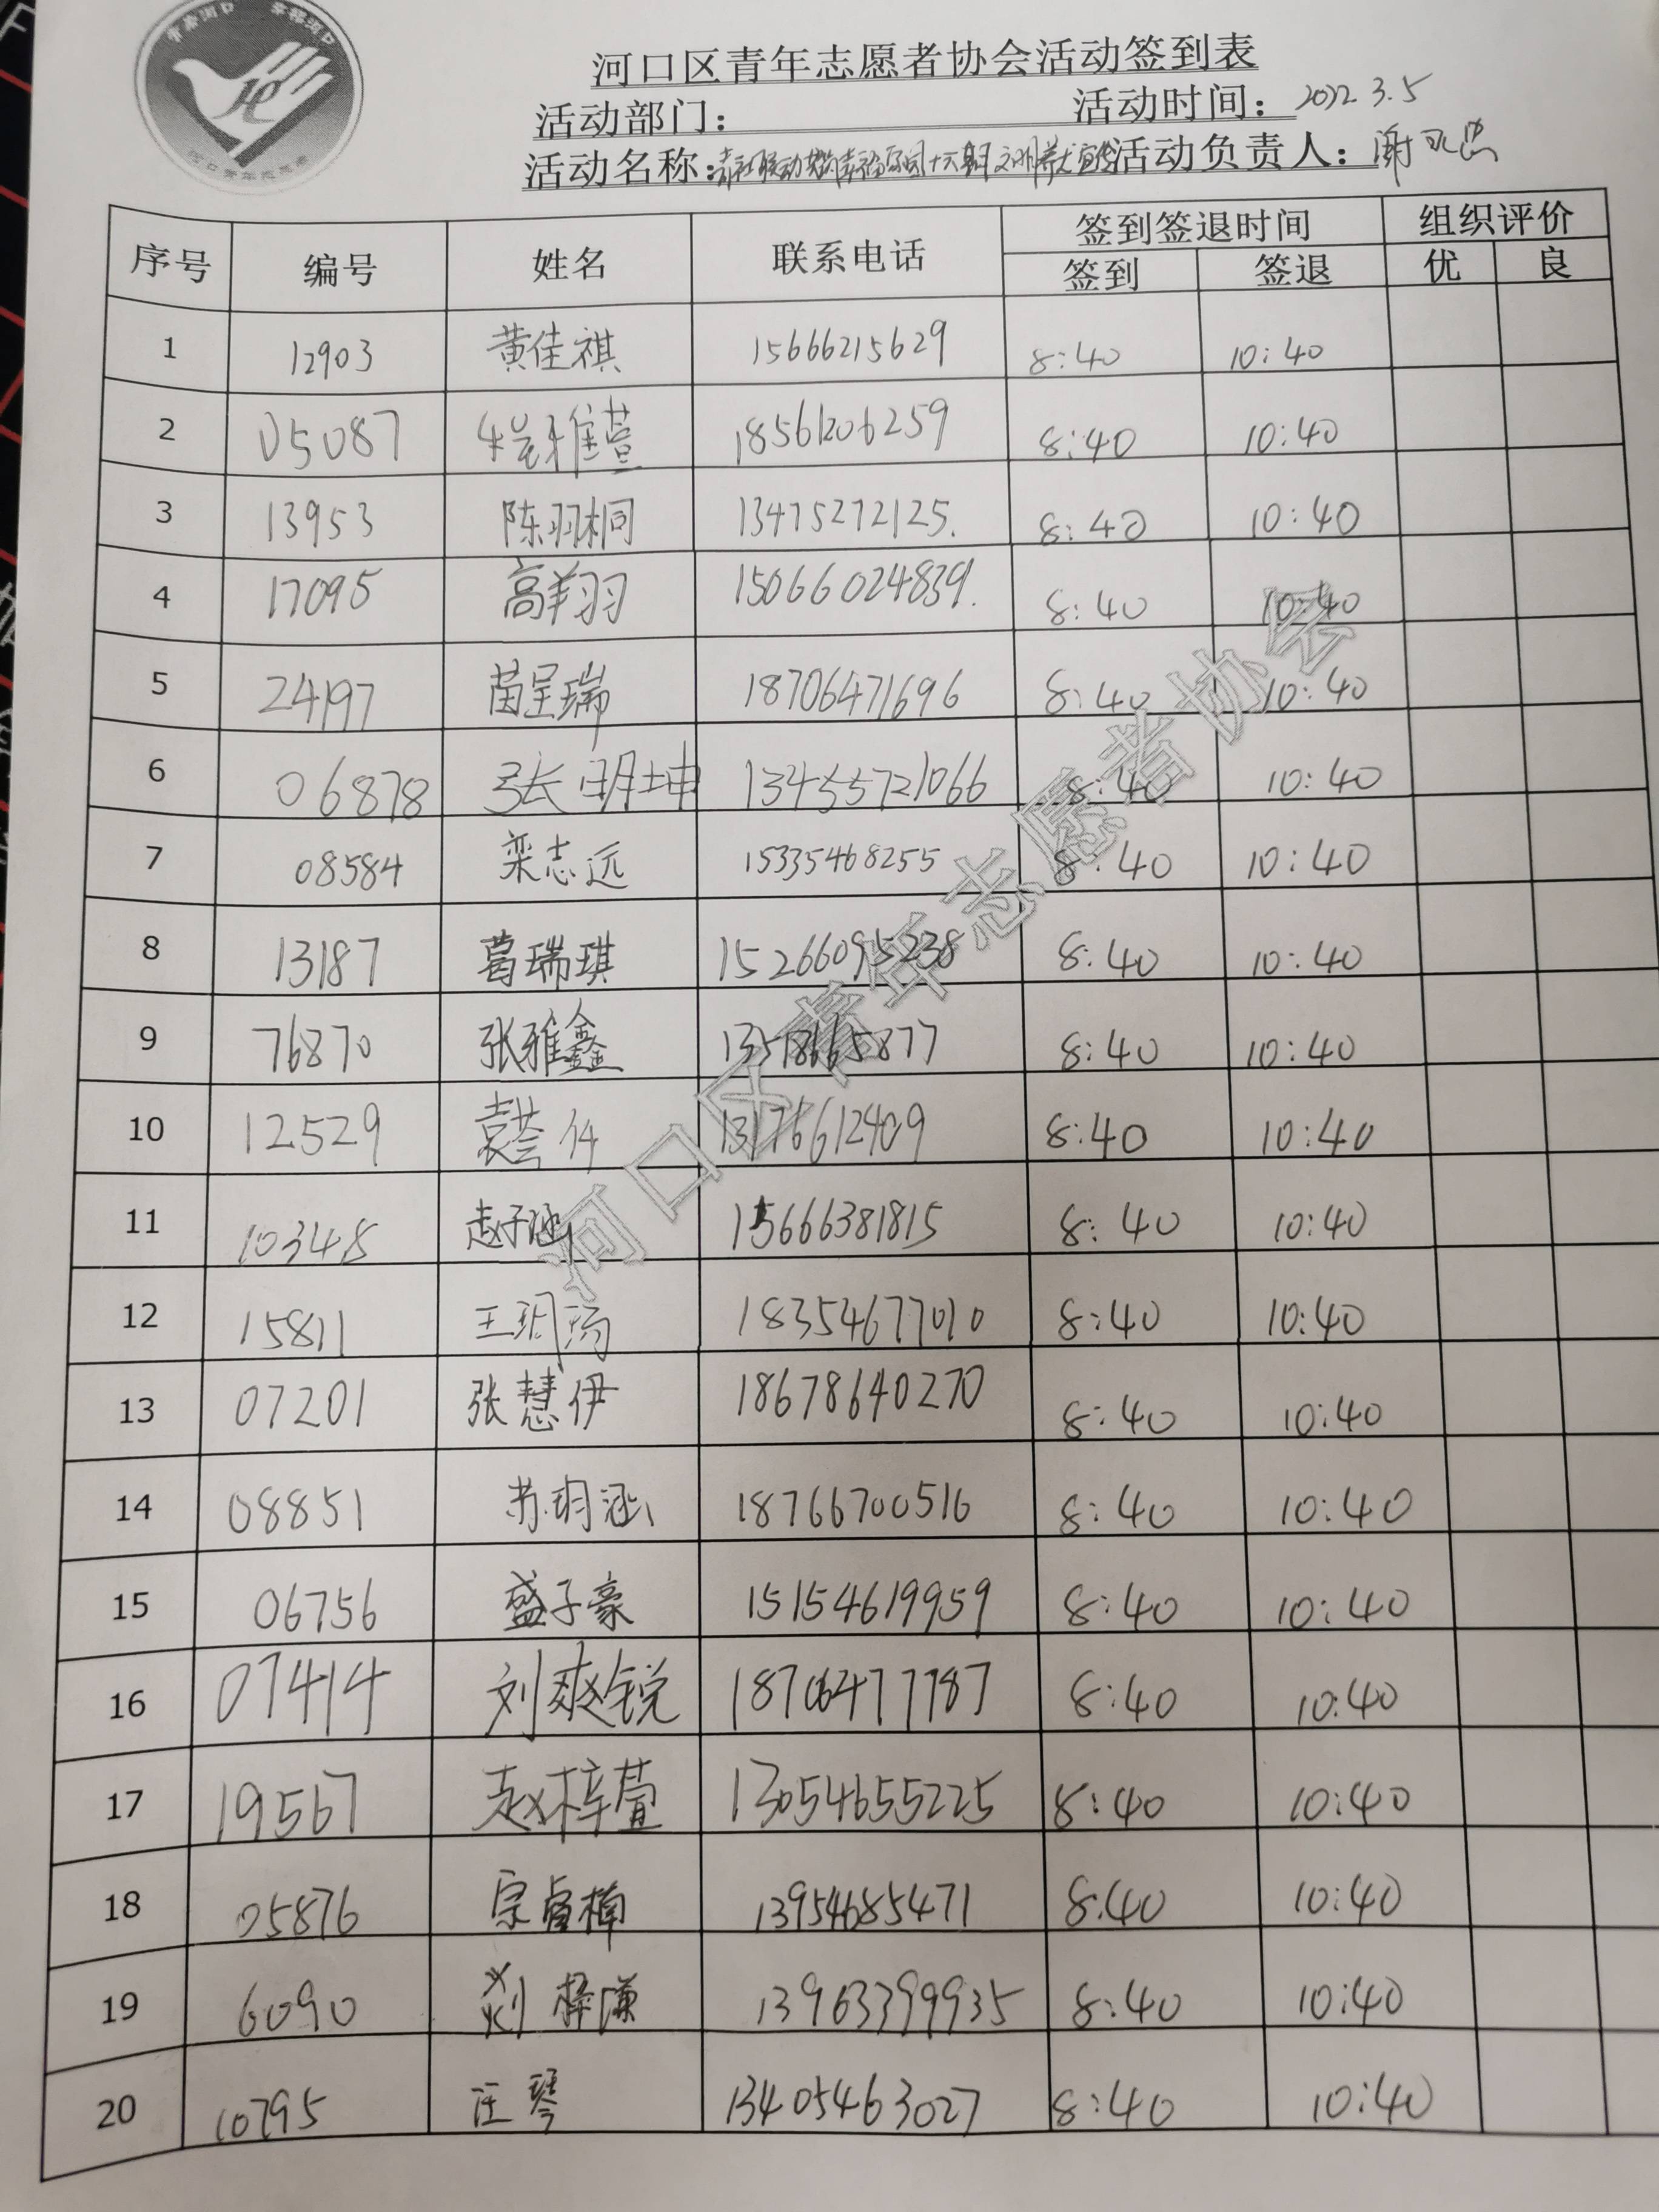 幸福河口
河口区青年志愿者协会活动签到表
活动部门： 活动时间：2022.3.5
活动名称： 十六期 文明养犬宣传 活动负责人：谢
序号 编号 姓名 联系电话 签到签退时间 组织评价
签到 签退 优 良
1 12903 黄佳祺 15666215629 8:40 10:40
2 05087 雅萱 18561206259 8:40 10:40
3 13953 陈羽桐 13475272125. 8:40 10:40
4 17095 高翔羽 15066024839. 8:40 10:40
5 24197 苗呈瑞 18706471696 8:40 10:40
6 06878 张明坤 13455721066 8:40 10:40
7 08584 栾志远 15335468255 8:40 10:40
8 13187 葛瑞琪 15266095238 8:40 10:40
9 76870 张雅鑫 8:40 10:40
10 12529 袁荟 13176612409 8:40 10:40
11 103348 赵子涵 15666381815 8:40 10:40
12 15811 王玥 18354677010 8:40 10:40
13 07201 张慧伊 18678640270 8:40 10:40
14 08851 苏玥涵 18766700516 8:40 10:40
15 06756 盛子豪 15154619959 8:40 10:40
16 07414 刘爽锐 18706477787 8:40 10:40
17 19567 赵梓萱 13054655225 8:40 10:40
18 05876 宗 13954685471 8:40 10:40
19 6090 刘梓谦 13963399935 8:40 10:40
20 10795 汪琴 13405463027 8:40 10:40
河口区青年志愿者协会